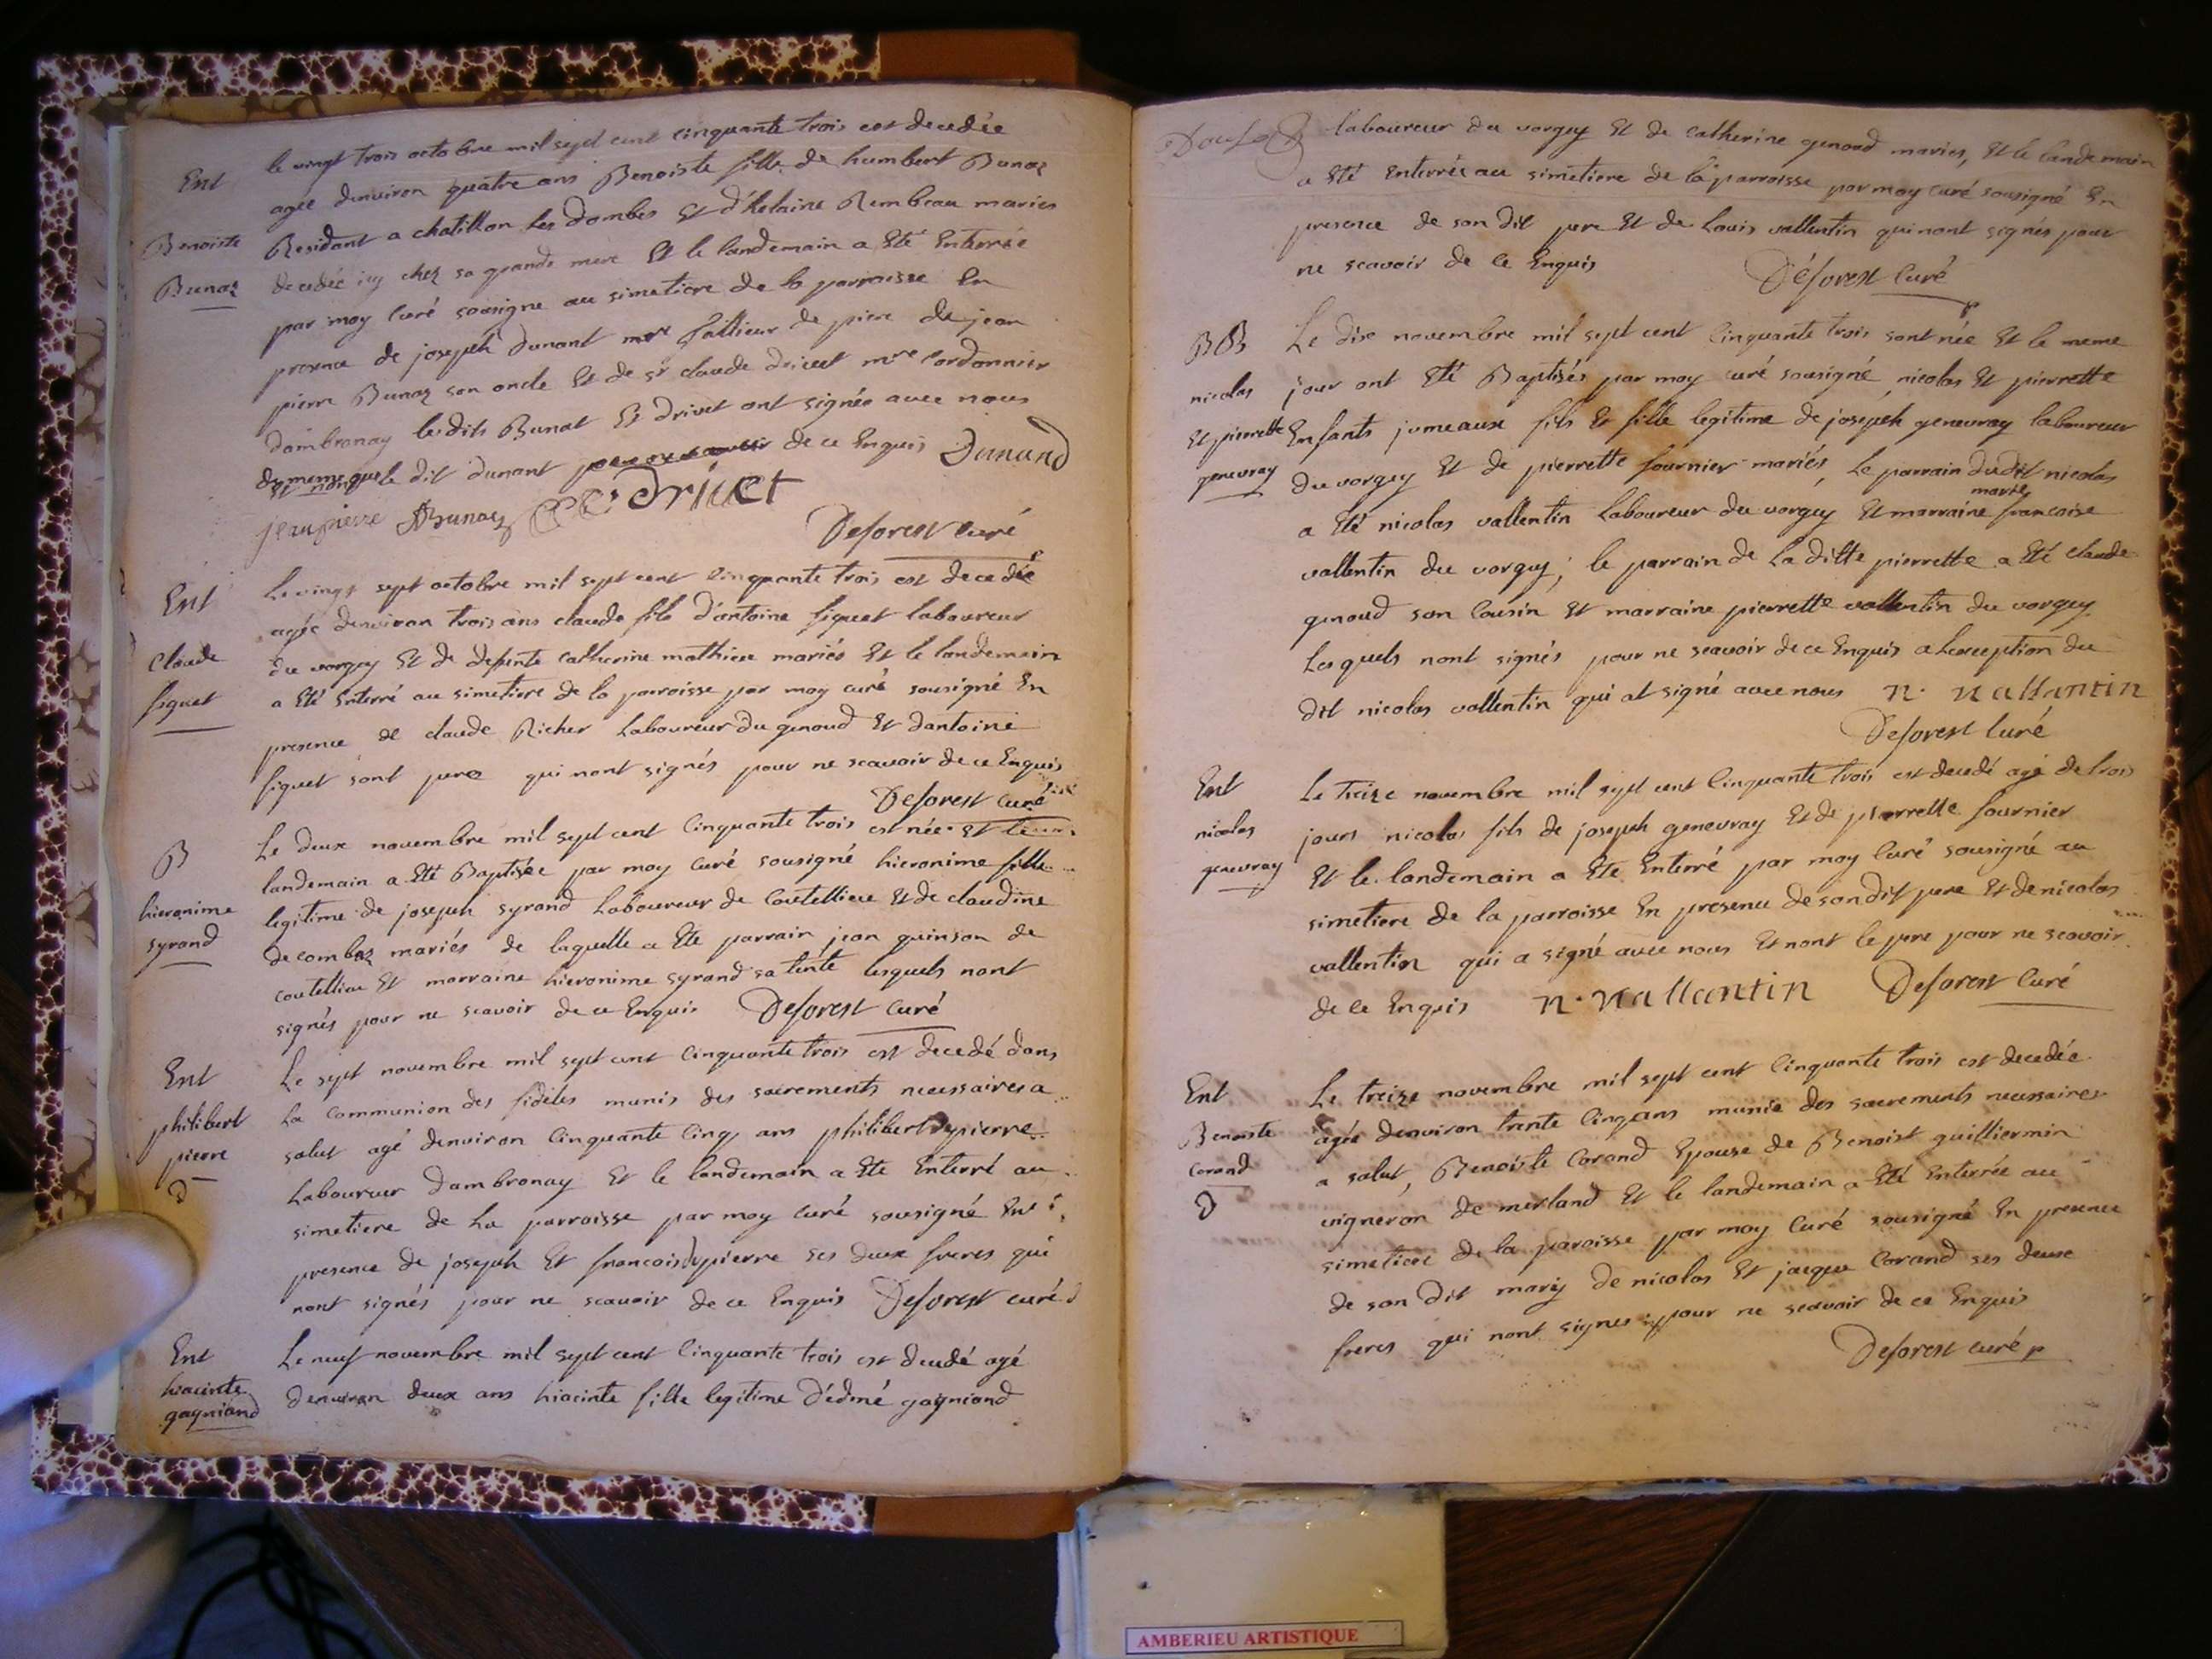 Ent
Benoiste
Bunaz
le vingt trois octobre mil sept cent cinquante trois est decedée
agée denviron quatre ans Benoiste fille de humbert Bunaz
Residant a chatillon les dombes Et d'helaine Rembeau maries
decedée icy chez sa grande mere Et le landemain a Eté Enterrée
par moy curé sousigne au simetiere de la parroisse En
presence de joseph dunant mre tallieur de piere de jean
pierre Bunaz son oncle Et de sr claude drivet mre cordonnier
dambronay lesdits Bunat Et drivet ont signés avec nous
de meme que le dit dunant de ce Enquis Dunand
jean pierre Bunaz C. Drivet
Deforest curé
Ent
claude
fiquet
Le vingt sept octobre mil sept cent cinquante trois est decedée
agée denviron trois ans claude fils d'antoine fiquet laboureur
du vorgey Et de defunte catherine mathieu mariés Et le landemain
a Eté Enterré au simetiere de la parroisse par moy curé sousigné En
presence de claude Richer Laboureur du genoud Et dantoine
fiquet sont pere qui nont signés pour ne scavoir de ce Enquis
Deforest curé
B
hieronime
syrand
Le deux novembre mil sept cent cinquante trois est née Et le
landemain a Eté Baptisée par moy curé sousigné hieronime fille
legitime de joseph syrand Laboureur de Coutelliere Et de claudine
decombaz mariés de laquelle a Ete parrain jean guinson de
coutelliere Et marraine hieronime syrand sa tente lesquels nont
signés pour ne scavoir de ce Enquis Deforest curé
Ent
philibert
pierre
D
Le sept novembre mil sept cent cinquante trois est decedé dans
La communion des fidèles munis des sacrements necessaires a
salut agé denviron cinquante cinq ans philibert dypierre
Laboureur dambronay Et le landemain a Ete Enterré au
simetiere de La parroisse par moy curé sousigné En
presence de joseph Et francois dypierre ses deux freres qui
nont signés pour ne scavoir de ce Enquis Deforest curé
Ent
hiacinte
gagniand
Le neuf novembre mil sept cent cinquante trois est decedé agé
denviron deux ans hiacinte fille legitime d'edmé gagniand
laboureur du vorgey Et de catherine genoud maries, Et le landemain
a Eté Enterrée au simetiere de la parroisse par moy curé sousigné En
presence de son dit pere Et de Louis vallentin qui nont signés pour
ne scavoir de ce Enquis Deforest curé
BB
nicolas
Et pierrette
genevray
Le dix novembre mil sept cent cinquante trois sont née Et le meme
jour ont Eté Baptisés par moy curé sousigné nicolas Et pierrette
Enfants jumeaux fils Et fille legitime de joseph genevray laboureur
du vorgey Et de pierrette fournier mariés, le parrain dudit nicolas
a Eté nicolas vallentin laboureur du vorgey Et marraine marie francoise
vallentin du vorgey; le parrain de la ditte pierrette a Eté claude
genoud son cousin Et marraine pierrette vallentin du vorgey
Lesquels nont signés pour ne scavoir de ce Enquis a Lexception du
dit nicolas vallentin qui at signé avec nous n. vallantin
Deforest curé
Ent
nicolas
genevray
Le treize novembre mil sept cent cinquante trois est decedé agé de trois
jours nicolas fils de joseph genevray Et de pierrette fournier
Et le landemain a Ete Enterré par moy curé sousigné au
simetiere de la parroisse En presence de son dit pere Et de nicolas
vallentin qui a signé avec nous Et nont le pere pour ne scavoir
de ce Enquis n. vallantin Deforest curé
Ent
Benoiste
Corand
D
Le treize novembre mil sept cent cinquante trois est decedée
agée denviron trente cinq ans munie des sacrements necessaires
a salut, Benoiste Corand Epouse de Benoist guilliermin
vigneron de merland Et le landemain a Eté Enterrée au
simetiere de la paroisse par moy curé sousigné En presence
de son dit marij de nicolas Et jacque Corand ses deux
freres qui nont signes pour ne scavoir de ce Enquis
Deforest curé
AMBERIEU ARTISTIQUE